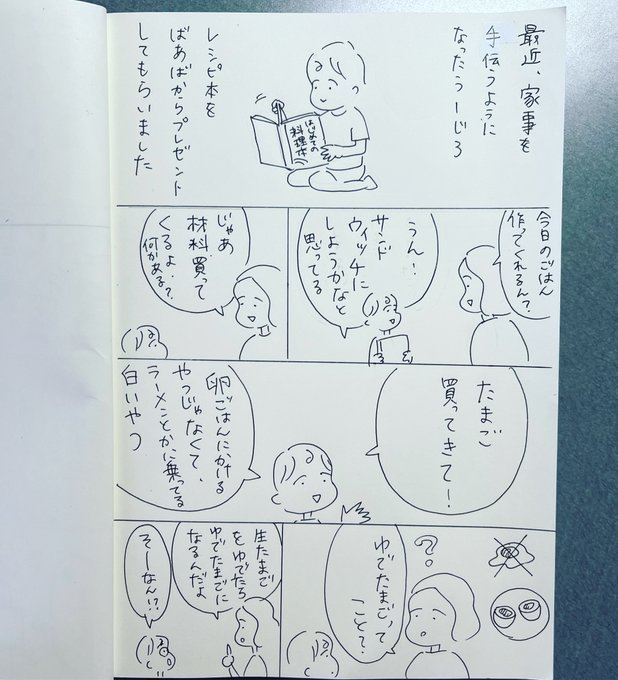 最近、家事を
手伝うように
なったうーじろ
レシピ本を
ばあばからプレゼント
してもらいました
はじめての
料理本
今日のごはん
作ってくれるん?
うん!
サンド
ウィッチに
しようかなと
思ってる
じゃあ
材料買って
くるよ。
何がある?
たまご
買ってきてー!
卵ごはんにかける
やつじゃなくて、
ラーメンとかに乗ってる
白いやつ
?
ゆでたまごって
こと?
生たまご
をゆでたら
ゆでたまごに
なるんだよ
そーなん!?